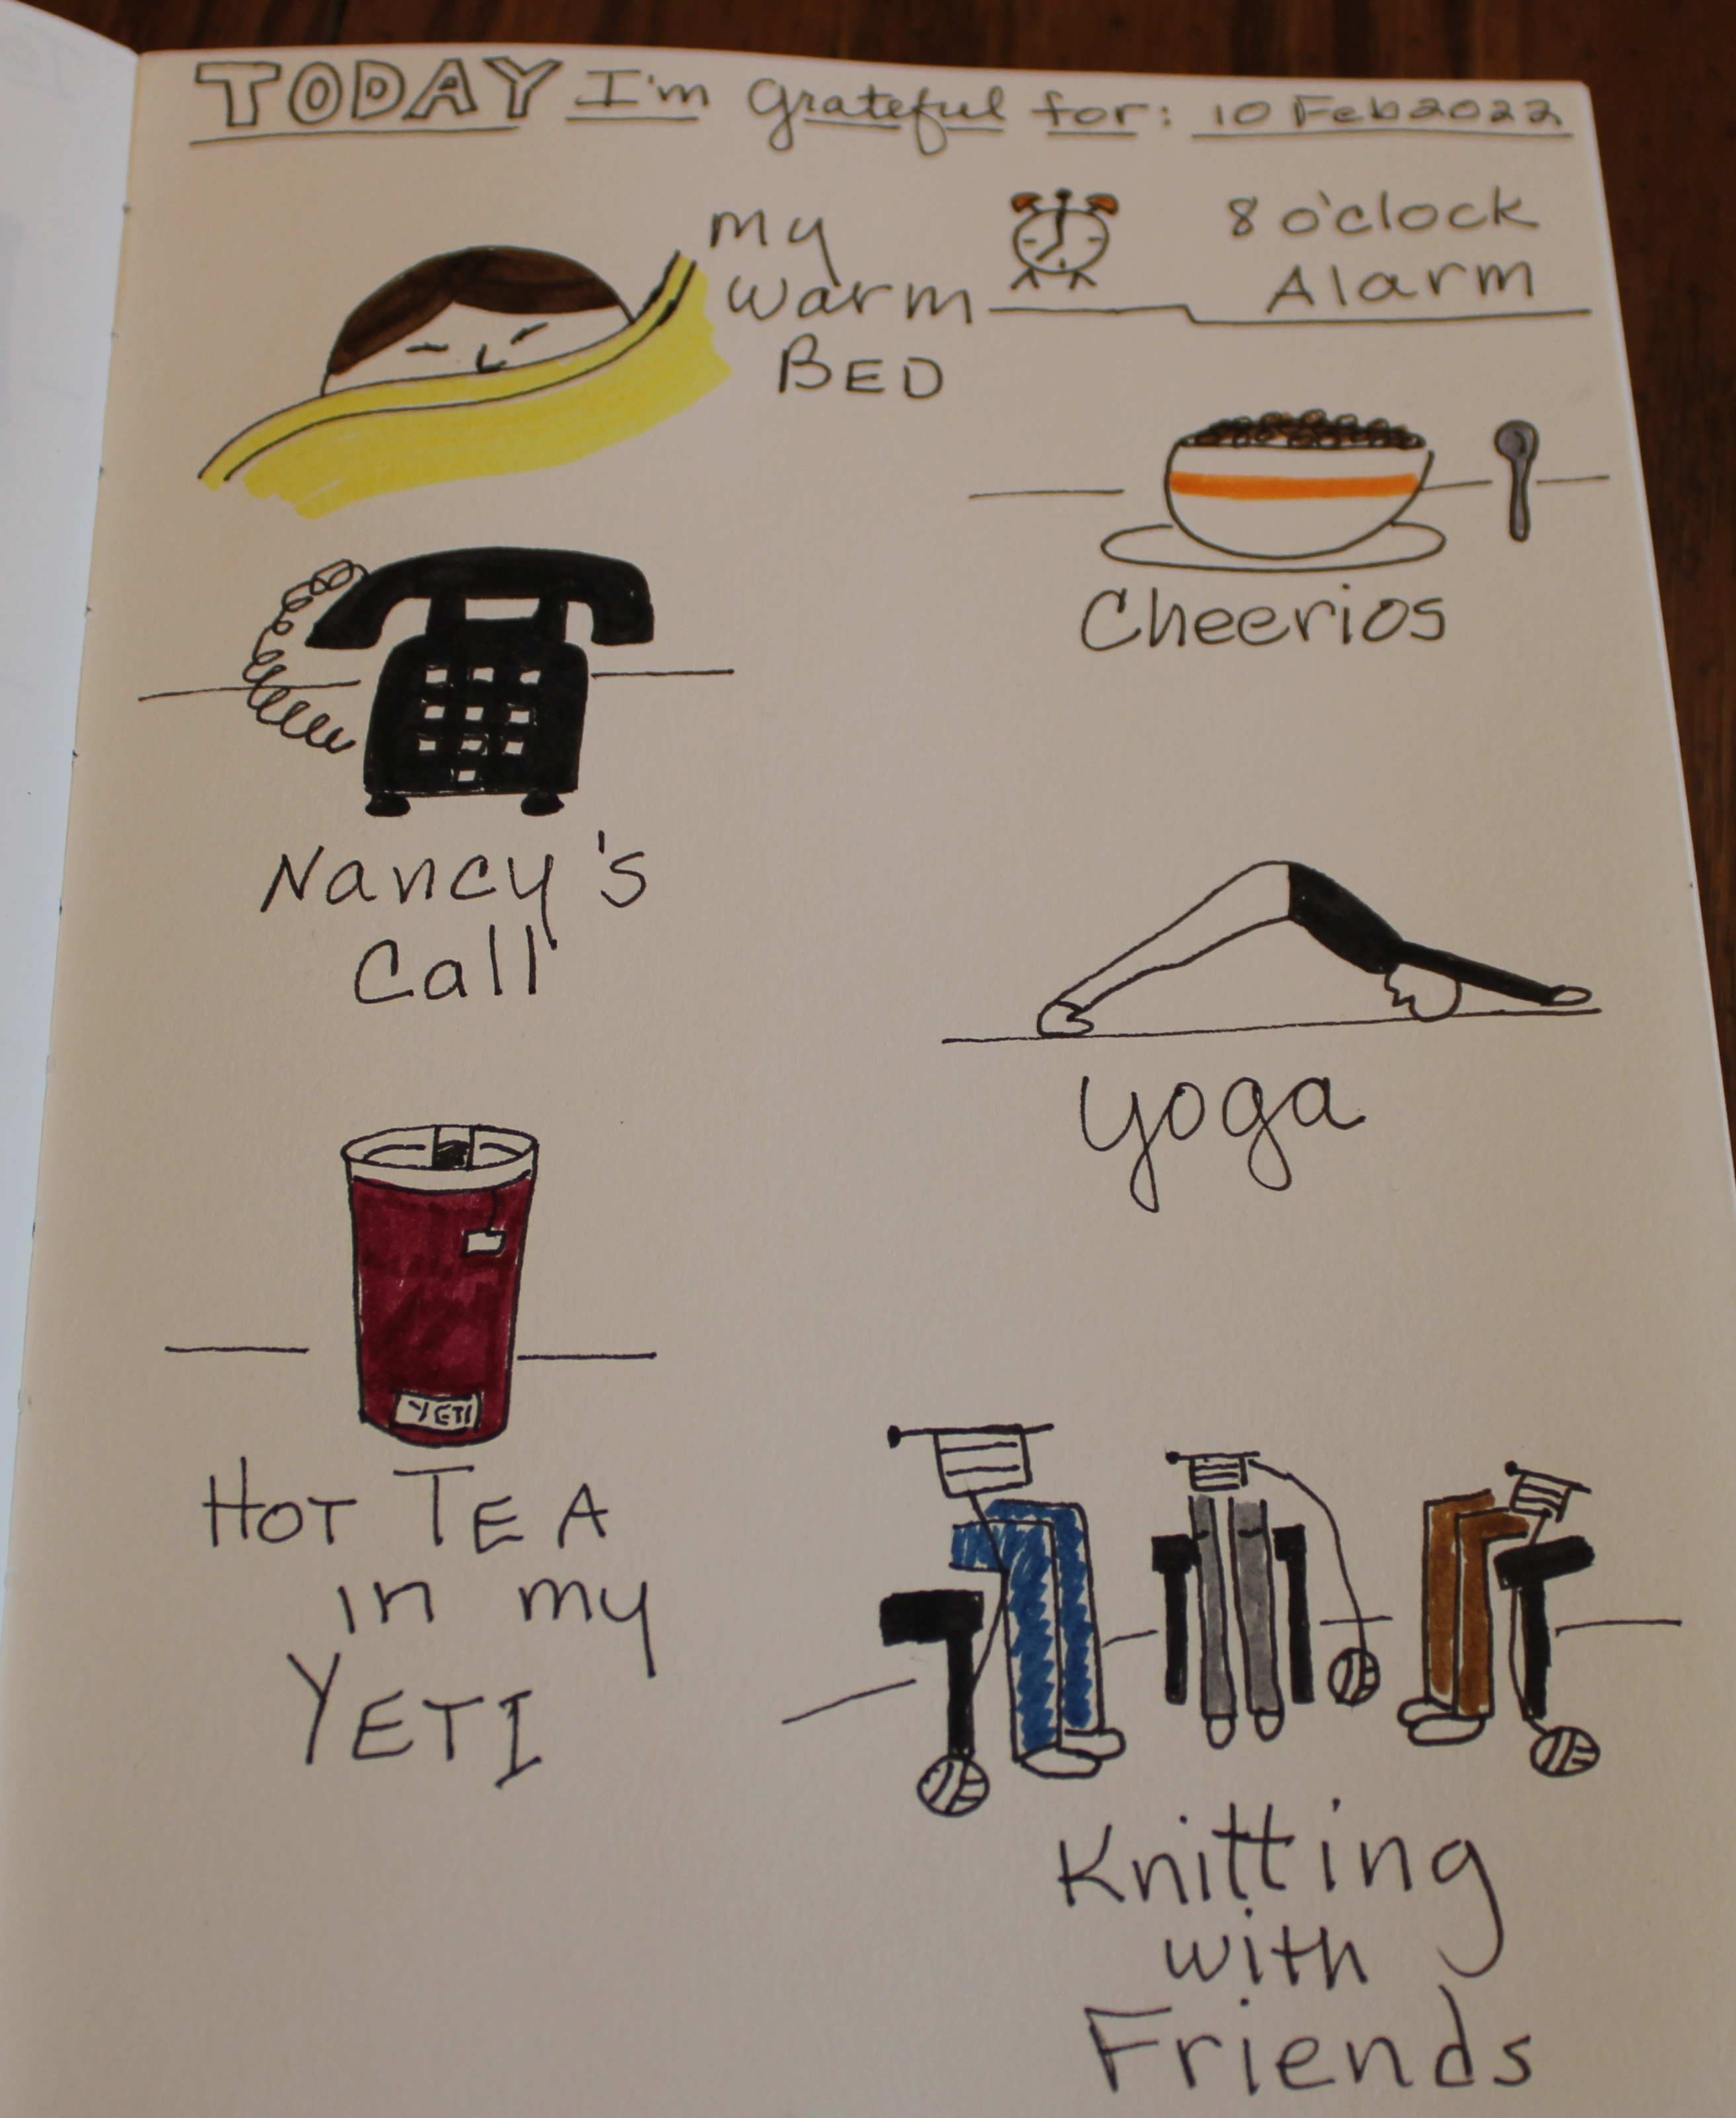 TODAY I'm Grateful for: 10 Feb 2022
my
warm
BED
8 o'clock
Alarm
Cheerios
Nancy's
Call
yoga
YETI
HOT TEA
in my
YETI
Knitting
with
Friends